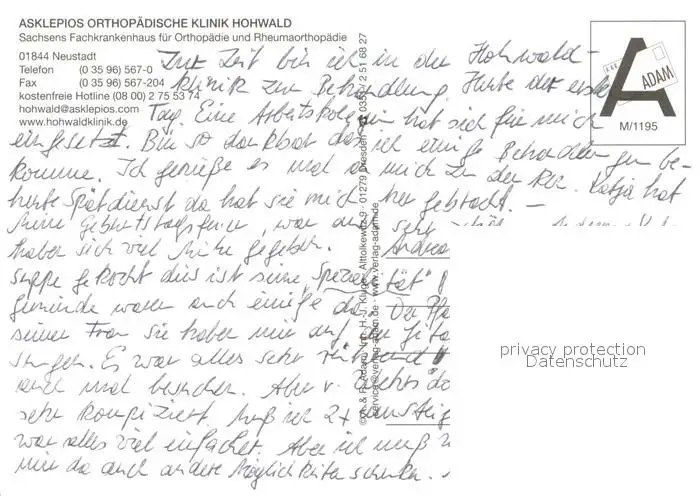 ASKLEPIOS ORTHOPÄDISCHE KLINIK HOHWALD
Sachsens Fachkrankenhaus für Orthopädie und Rheumaorthopädie
01844 Neustadt
Telefon (0 35 96) 567-0
Fax (0 35 96) 567-204
kostenfreie Hotline (08 00) 2 75 53 74
hohwald@asklepios.com
www.hohwaldklinik.de
ADAM
M/1195
Zur Zeit bin ich in der Hohwald-
klinik zur Behandlung. Heute der erste
Tag. Eine hat sich für mich
eingesetzt. Bin so dankbar das ich einige Behandlungen be-
komme. Ich genieße es mal mich zu der Katja hat
heute Spätdienst da hat sie mich her gebracht. –
Meine Geburtstagsfeier, war sehr schön. Andrea
haben sich viel Mühe gegeben. Andreas
suppe gekocht dies ist seine Spezialität"
gemeinde waren auch einige da. Der
seiner Frau sie haben mir auf der
sungen. Es war alles sehr
und mal besuchen. Aber
sehr kompliziert. muß ich 2x umsteig
war alles viel einfacher. Aber ich muß
mir da auch andere Möglichkeiten suchen.
© A. & R. Adam, Inh. H.-J. Kluge · Alttolkewitz 9 · 01279 Dresden · 0351/2 51 68 27
service@verlag-adam.de · www.verlag-adam.de
privacy protection
Datenschutz